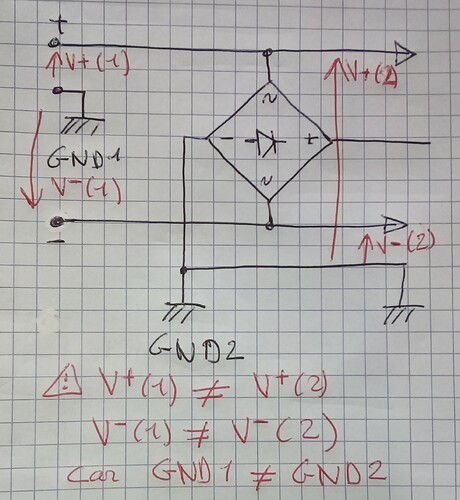 +
V+(1)
V+(2)
~
- +
GND1
V-(1)
~
V-(2)
-
GND2
⚠ V+(1) ≠ V+(2)
V-(1) ≠ V-(2)
car GND1 ≠ GND2